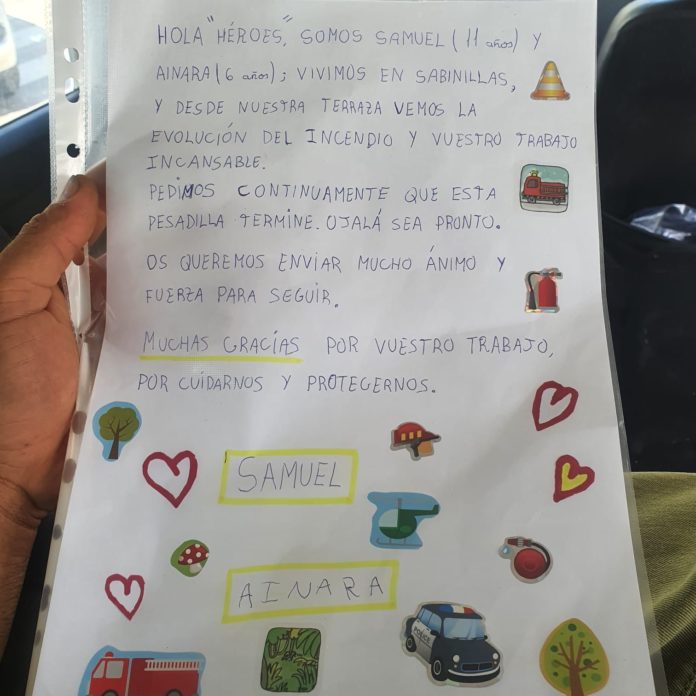 HOLA "HÉROES", SOMOS SAMUEL (11 años) Y
AINARA (6 años); VIVIMOS EN SABINILLAS,
Y DESDE NUESTRA TERRAZA VEMOS LA
EVOLUCIÓN DEL INCENDIO Y VUESTRO TRABAJO
INCANSABLE.
PEDIMOS CONTINUAMENTE QUE ESTA
PESADILLA TERMINE. OJALÁ SEA PRONTO.
OS QUEREMOS ENVIAR MUCHO ÁNIMO Y
FUERZA PARA SEGUIR.
MUCHAS GRACÍAS POR VUESTRO TRABAJO,
POR CUIDARNOS Y PROTEGERNOS.
SAMUEL
AINARA
POLICE